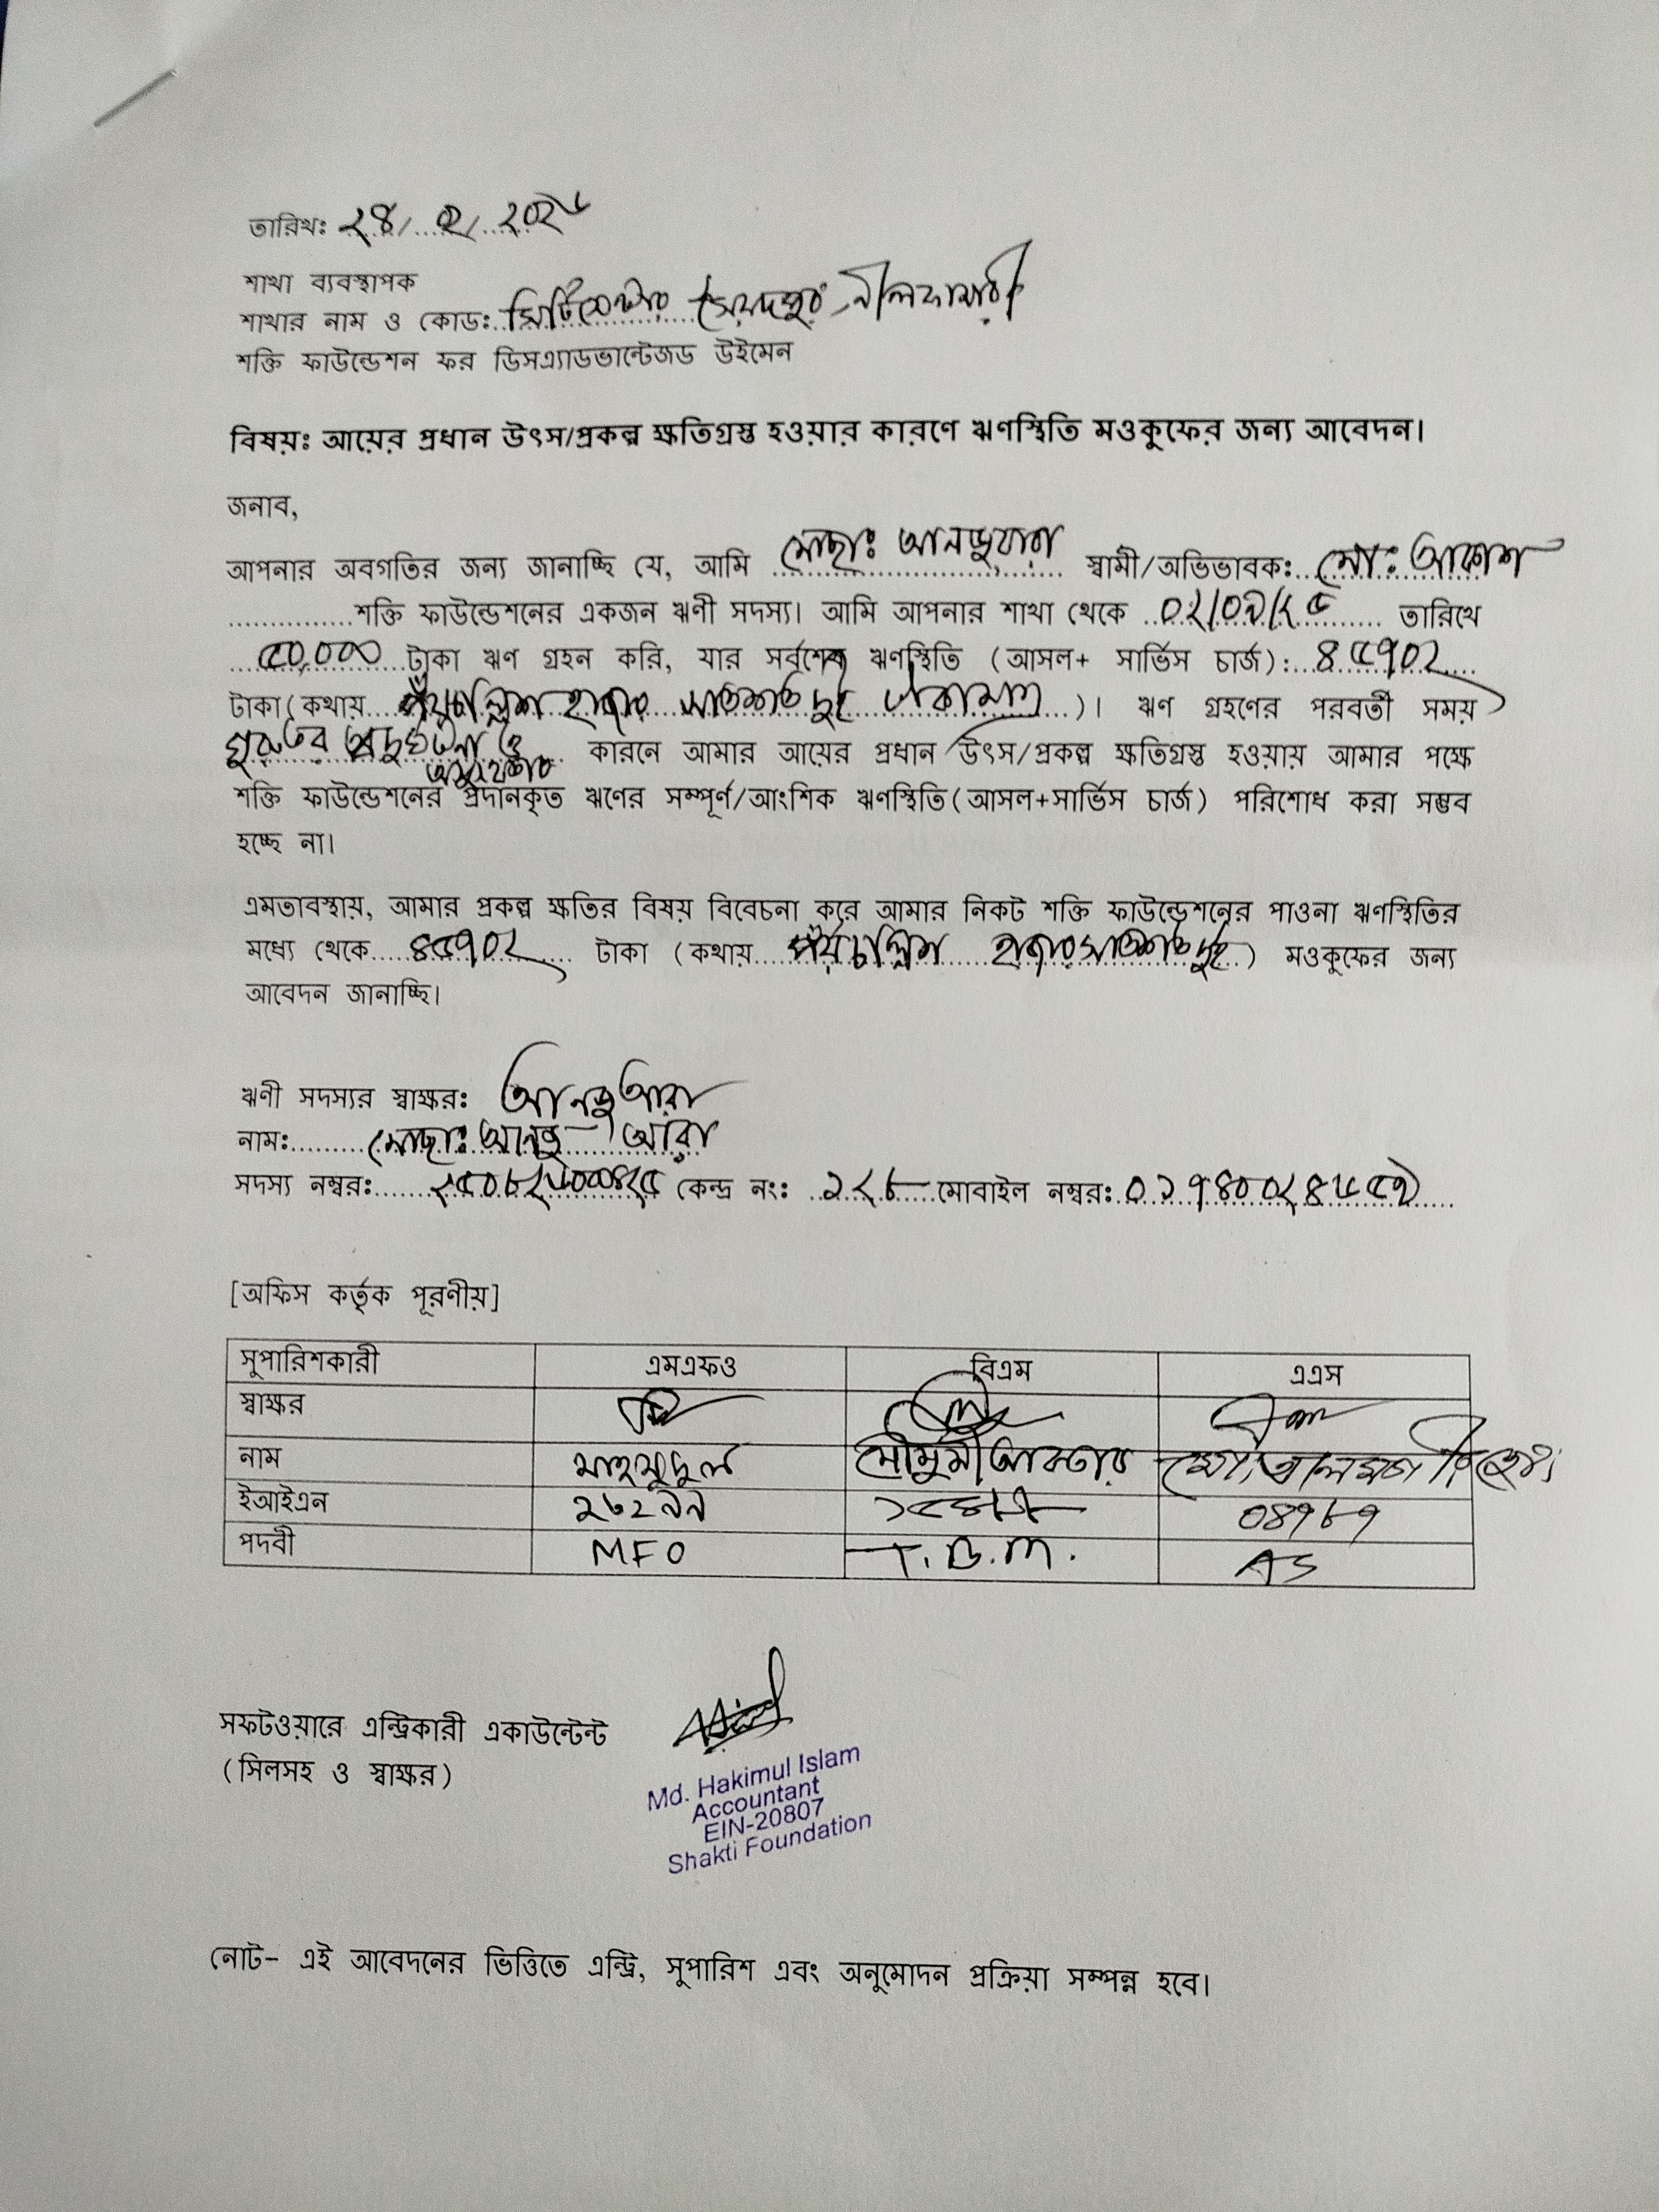 তারিখঃ ২৪/ ০২/ ২০২৬
শাখা ব্যবস্থাপক
শাখার নাম ও কোডঃ সিটিসেন্টার সৈয়দপুর, নীলফামারী
শক্তি ফাউন্ডেশন ফর ডিসএ্যাডভান্টেজড উইমেন
বিষয়ঃ আয়ের প্রধান উৎস/প্রকল্প ক্ষতিগ্রস্ত হওয়ার কারণে ঋণস্থিতি মওকুফের জন্য আবেদন।
জনাব,
আপনার অবগতির জন্য জানাচ্ছি যে, আমি মোছাঃ আনজুয়ারা স্বামী/অভিভাবকঃ মোঃ আকাশ
শক্তি ফাউন্ডেশনের একজন ঋণী সদস্য। আমি আপনার শাখা থেকে ০২/০৯/২৫ তারিখে
৫০,০০০ টাকা ঋণ গ্রহন করি, যার সর্বশেষ ঋণস্থিতি (আসল+ সার্ভিস চার্জ): ৪৫৭০২
টাকা(কথায় পঁয়চাল্লিশ হাজার সাতশত দুই টাকামাত্র)। ঋণ গ্রহণের পরবর্তী সময়
গুরুতর ও অসুস্থতার কারনে আমার আয়ের প্রধান উৎস/প্রকল্প ক্ষতিগ্রস্ত হওয়ায় আমার পক্ষে
শক্তি ফাউন্ডেশনের প্রদানকৃত ঋণের সম্পূর্ণ/আংশিক ঋণস্থিতি(আসল+সার্ভিস চার্জ) পরিশোধ করা সম্ভব
হচ্ছে না।
এমতাবস্থায়, আমার প্রকল্প ক্ষতির বিষয় বিবেচনা করে আমার নিকট শক্তি ফাউন্ডেশনের পাওনা ঋণস্থিতির
মধ্যে থেকে ৪৫৭০২ টাকা (কথায় পঁয়চাল্লিশ হাজার সাতশত দুই) মওকুফের জন্য
আবেদন জানাচ্ছি।
ঋণী সদস্যর স্বাক্ষরঃ আনজুআরা
নামঃ মোছাঃ আনজু আরা
সদস্য নম্বরঃ কেন্দ্র নংঃ ১২৮ মোবাইল নম্বরঃ ০১৭৪০০২৪৬৫৯
[অফিস কর্তৃক পূরণীয়]
সুপারিশকারী এমএফও বিএম এএস
স্বাক্ষর
নাম মাহমুদুল মৌসুমী আক্তার
ইআইএন ২৬২৯৯ ০৪৭৮৭
পদবী MFO T.B.M. AS
সফটওয়ারে এন্ট্রিকারী একাউন্টেন্ট
(সিলসহ ও স্বাক্ষর)
Md. Hakimul Islam
Accountant
EIN-20807
Shakti Foundation
নোট- এই আবেদনের ভিত্তিতে এন্ট্রি, সুপারিশ এবং অনুমোদন প্রক্রিয়া সম্পন্ন হবে।